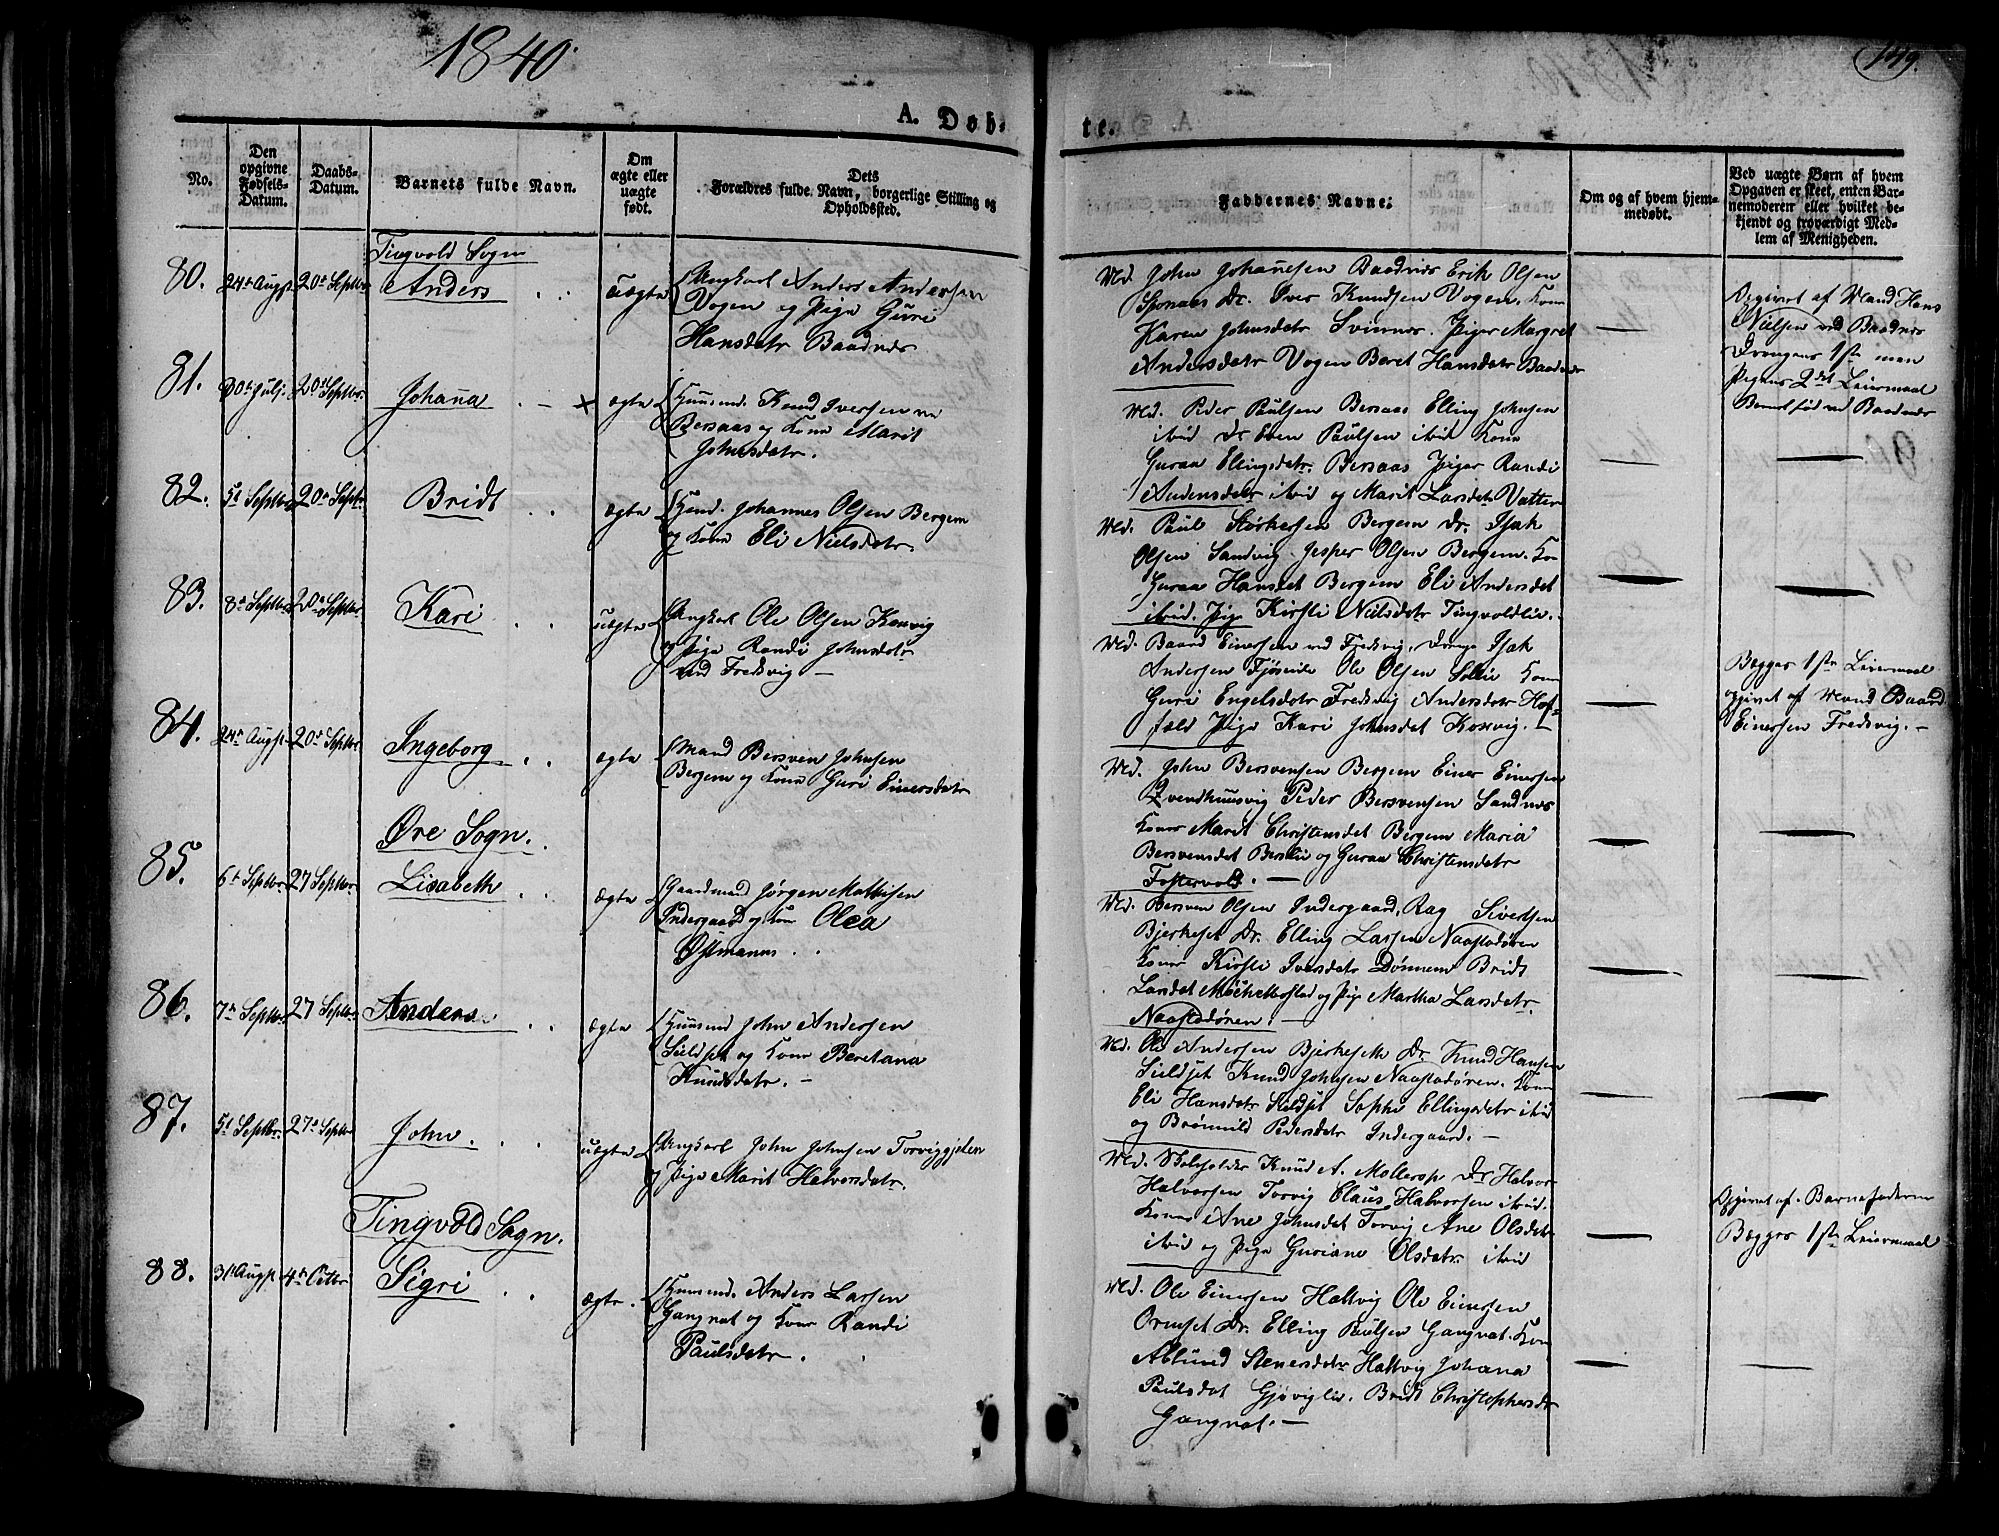 1840.
149.
A. Døb-
te.
No.
Den opgivne Fødsels-Datum.
Daabs-Datum.
Barnets fulde Navn.
Om ægte eller uægte født.
Dets Forældres fulde Navn, borgerlige Stilling og Opholdssted.
Faddernes Navne.
Om og af hvem hjem-medøbt.
Ved uægte Børn af hvem Opgaven er skeet, enten Bar-nemoderen eller hvilket be-kjendt og troværdigt Med-lem af Menigheden.
Tingvold Sogn
80.
24de Augst
20de Septbr
Anders
uægte
Ungkarl Anders Andersen
Vogen og Pige Guri
Hansdatr Baadnes
Md. John Johannesen Baadnes Erik Olsen
Dr. Iver Knudsen Vogen. Kone
Karen Johnsdatr Svinnes. Piger Margret
Andersdatr Vogen Beret Hansdatr Baadnes
Opgivet af Mand Hans
Nielsen ved Baadnes
Drengens 1ste men
Pigens 2det Leiermaal
Barnet fød ved Baadnes
81.
30te Julj.
20de Septbr.
Johana
ægte
Huusmd. Knud Iversen
Bersaas og Kone Marit
Johnsdatr.
Md. Peder Paulsen Bersaas Elling Johnsen
ibid Dr Even Paulsen ibid Kone
Guraa Ellingsdatr. Bersaas Piger Randi
Andersdatr ibid og Marit Larsdatr Vatten
82.
5te Septbr
20de Septbr
Bridt
ægte
Huusmd. Johannes Olsen Bergem
og Kone Eli Nielsdatr.
Md. Paul Størkersen Bergem Dr. Isak
Olsen Sandvig Jesper Olsen Bergem. Kone
Guraa Hansdat Bergem Eli Andersdat
ibid. Pige Kirsti Nielsdatr Tingvoldlie.
83.
8de Septbr
20de Septbr
Kari
uægte
Ungkarl Ole Olsen Korsvig
og Pige Randi Johnsdatr
ved Fredsvig
Md. Baard Einersen ved Fredsvig. Drenge Isak
Andersen Ole Olsen Sollie Kone
Guri Engelsdatr Fredsvig Andersdatr Hof-
feld Pige Kari Johnsdat Korsvig.
Begges 1ste Leiermaal
opgivet af Mand Baard
Einersen Fredsvig.
84.
24de Augst
20de Septbr
Ingeborg
ægte
Mand Bersven Johnsen
Bergem og Kone Guri Einersdatr
Md. John Bersvensen Bergem Einer Einersen
Peder Bersvensen Sandnes
Koner Marit Christensdat Bergem Maria
Bersvensdat Berslie og Guraa Christensdatr
Fostervold.
Øre Sogn.
85.
6te Septbr
27 Septbr
Lisabeth
ægte
Gaardmand Jørgen Mattisen
Indergaard og Kone Olea
Ostmanns
Md. Bersven Olsen Indergaard, Rag Sivertsen
Bjerkeset Dr. Elling Larsen Naastadøren
Koner Kirsti Iversdatr Dønnem Bridt
Larsdat og Pige Martha Larsdatr
Naastadøren.
86.
7de Septbr
27 Septbr
Anders
ægte
Huusmd John Andersen
Sieldset og Kone Beretana
Knudsdatr.
Md. Ole Andersen Bjerkeseth Dr. Knud Hansen
Sieldset Knud Johnsen Naastadøren. Kone
Eli Hansdatr Sieldset Sophi Ellingsdatr ibid
og Brønnild Pedersdatr Indergaard.
87.
5te Septbr.
27de Septbr
John
uægte
Ungkarl John Johnsen Torviggjelen
og Pige Marit Halvorsdatr.
Md. Skoleholder Knud A. Mollerop Dr Halvor
Halvorsen Torvig Claus Halvorsen ibid.
Koner Ane Johnsdat Torvig Ane Olsdatr
ibid og Pige Guriane Olsdatr ibid
Opgivet af Barnefaderen
Begges 1ste Leiermaal
Tingvold Sogn.
88.
31te Augst
4de Octbr
Sigri
ægte.
Huusmd. Anders Larsen
Gangnat og Kone Randi
Paulsdatr.
Md. Ole Einersen Haltvig Ole Einersen
Ormset Dr. Elling Paulsen Gangnat. Kone
Ablund Stenersdatr Haltvig Johana
Paulsdat Gjøviglie. Bridt Christophersdr
Gangnat.